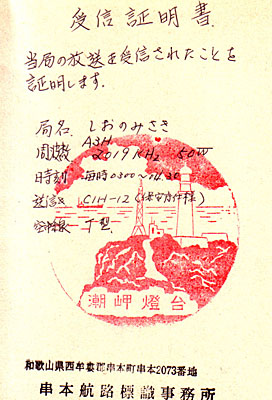 受信証明書
当局の放送を受信されたことを
証明します.
局名. しおのみさき
周波数 A3H 2019KHz 50W
日時刻 毎時0300〜0430
送信機 CIH-12 (保安庁仕様)
空中線 丁型
潮岬燈台
和歌山県西牟婁郡串本町串本2073番地
串本航路標識事務所